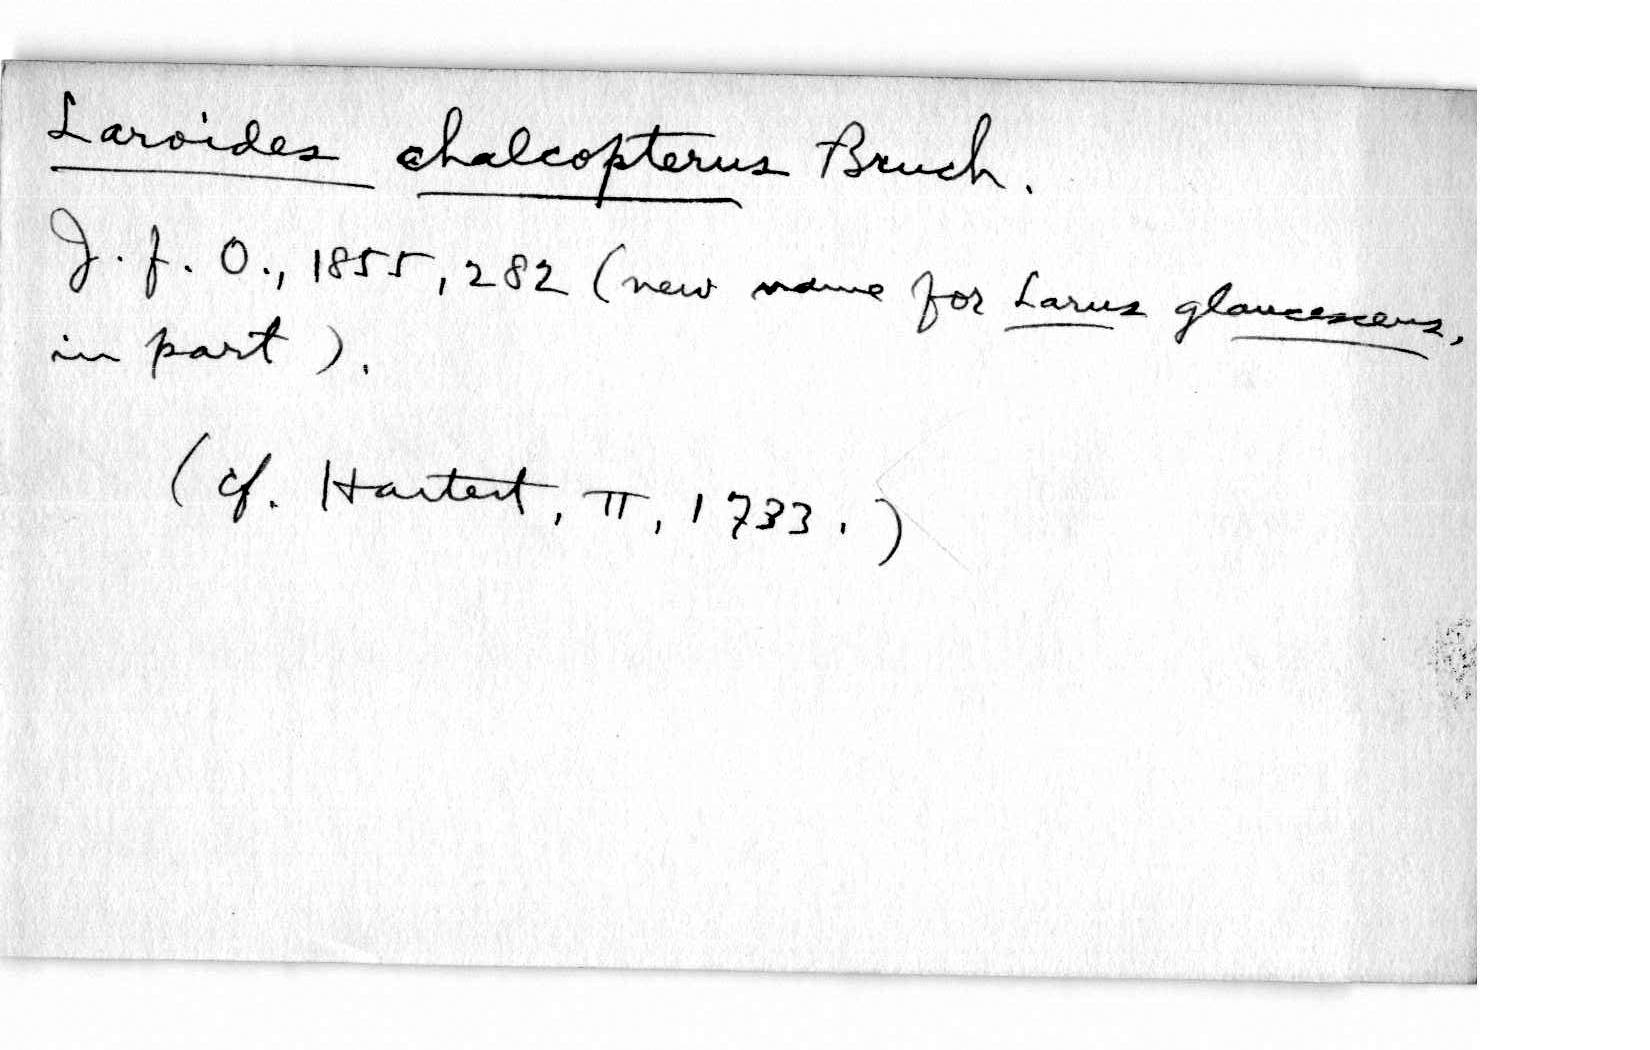 Laroides chalcopterus Bruch.
J. f. O., 1855, 282 (new name for Larus glaucescens,
in part).
(cf. Hartert, II, 1733.)